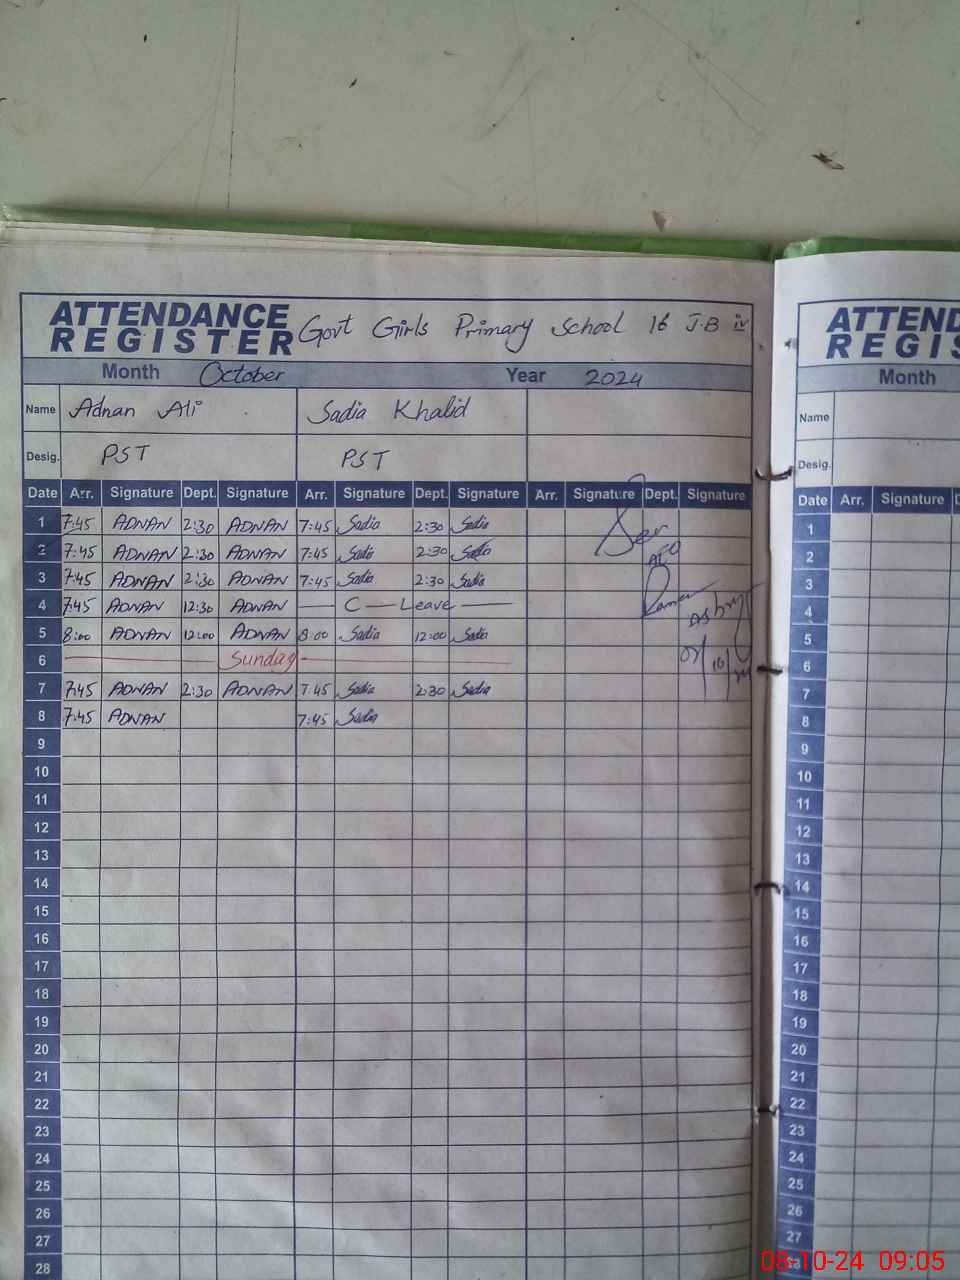 ATTENDANCE REGISTER Govt Girls Primary School 16 J-B iv
Month October Year 2024
Name Adnan Ali Sadia Khalid
Desig. PST PST
Date Arr. Signature Dept. Signature Arr. Signature Dept. Signature Arr. Signature Dept. Signature
1 7:45 ADNAN 2:30 ADNAN 7:45 Sadia 2:30 Sadia
2 7:45 ADNAN 2:30 ADNAN 7:45 Sadia 2:30 Sadia
3 7:45 ADNAN 2:30 ADNAN 7:45 Sadia 2:30 Sadia
4 7:45 ADNAN 12:30 ADNAN — C — Leave —
5 8:00 ADNAN 12:00 ADNAN 8:00 Sadia 12:00 Sadia
6 Sunday
7 7:45 ADNAN 2:30 ADNAN 7:45 Sadia 2:30 Sadia
8 7:45 ADNAN 7:45 Sadia
9
10
11
12
13
14
15
16
17
18
19
20
21
22
23
24
25
26
27
28
Seen
AEO
ATTEND
REGIS
Month
Name
Desig.
Date Arr. Signature
1
2
3
4
5
6
7
8
9
10
11
12
13
14
15
16
17
18
19
20
21
22
23
24
25
26
27
28
08-10-24 09:05